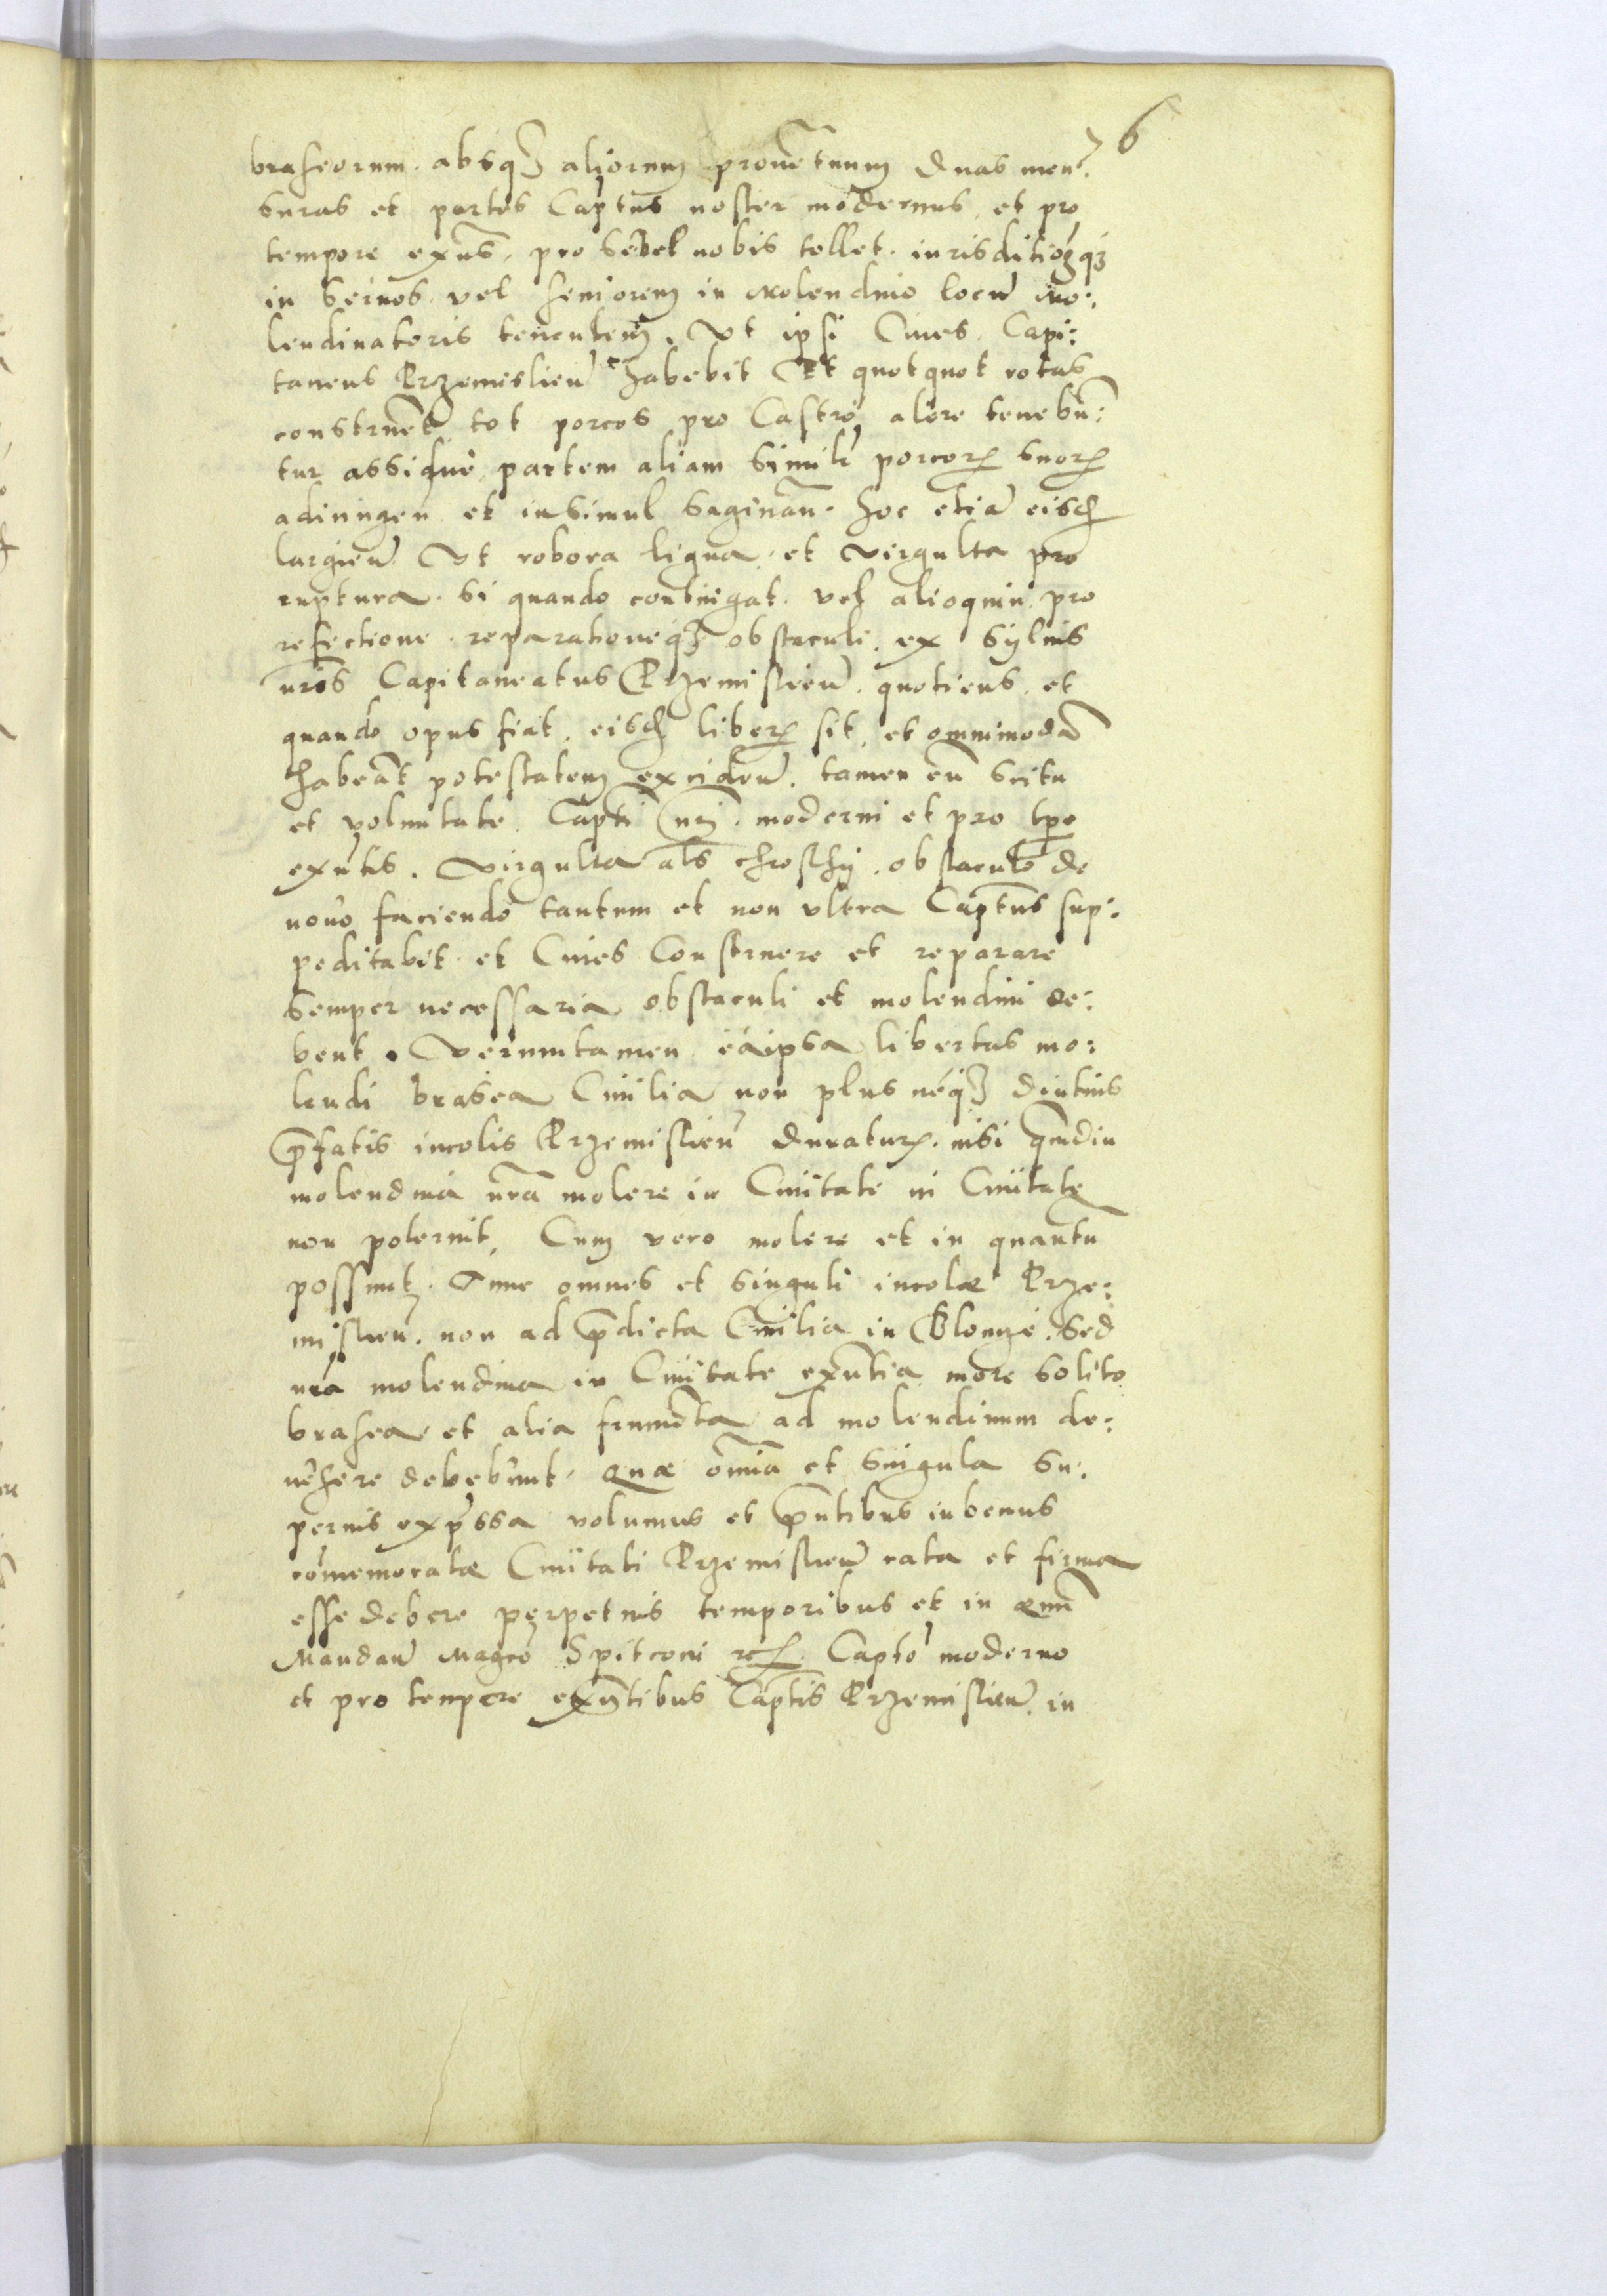 6
braseorum. absq3 aliorum prouētuum duas men:
suras et partes Captus noster modernus, et pro
tempore exñs, pro se vel nobis tollet. iurisditioēq3
in seruos vel seniorem in molendino locū Mo:
lendinatoris tenentem. Vt ipsi Ciues, Capi:
taneus Przemislieñ habebit Et quotquot rotas
construēt tot porcos pro Castro, alere tenebū:
tur assidue, partem aliam simili porcorꝝ suorꝝ
adiungeñ et insimul saginañ. hoc etiā eisdē
largieñ Vt robora ligna, et virgulta pro
ruptura. si quando contingat. vel alioquin pro
refectione. reparationeq3 obstaculi. ex syluis
nris Capitaneatus Przemislieñ. quotiens, et
quando opus fiat. eisdē liberꝝ sit, et omnimodā
habeāt potestatem excideñ. tamen cū scitu
et voluntate. Capti nri. moderni et pro tpe
exñtis. Virgulta als chrosthy. obstaculo de
nouo faciendo tantum et non vltra Captus sup:
peditabit et Ciues Construere et reparare
semper necessaria obstaculi et molendini de:
bent. Verumtamen eaipsa libertas mo:
lendi brasea Ciuilia non plus neq3 diutius
p̄fatis incolis Przemislieñ duraturꝝ. nisi q̄mdiu
molendina nra molere in Ciuitate in Ciuitate
non poterint, Cum vero molere et in quantū
possint. Tunc omnes et singuli incolæ Prze:
mislieñ. non ad p̄dicta Ciuilia in Blonye. Sed
nra molendina in Ciuitate exñtia more solito
brasea et alia frumēta ad molendinum de:
uehere debebunt. Quæ omnia et singula su:
perius exp̄ssa volumus et p̄ntibus iubemus
cōmemoratæ Ciuitati Przemislieñ rata et firma
esse debere perpetuis temporibus et in æuū
Mandañ Magco Spitconi Capto moderno
et pro tempore exñtibus Captis Przemislieñ. in